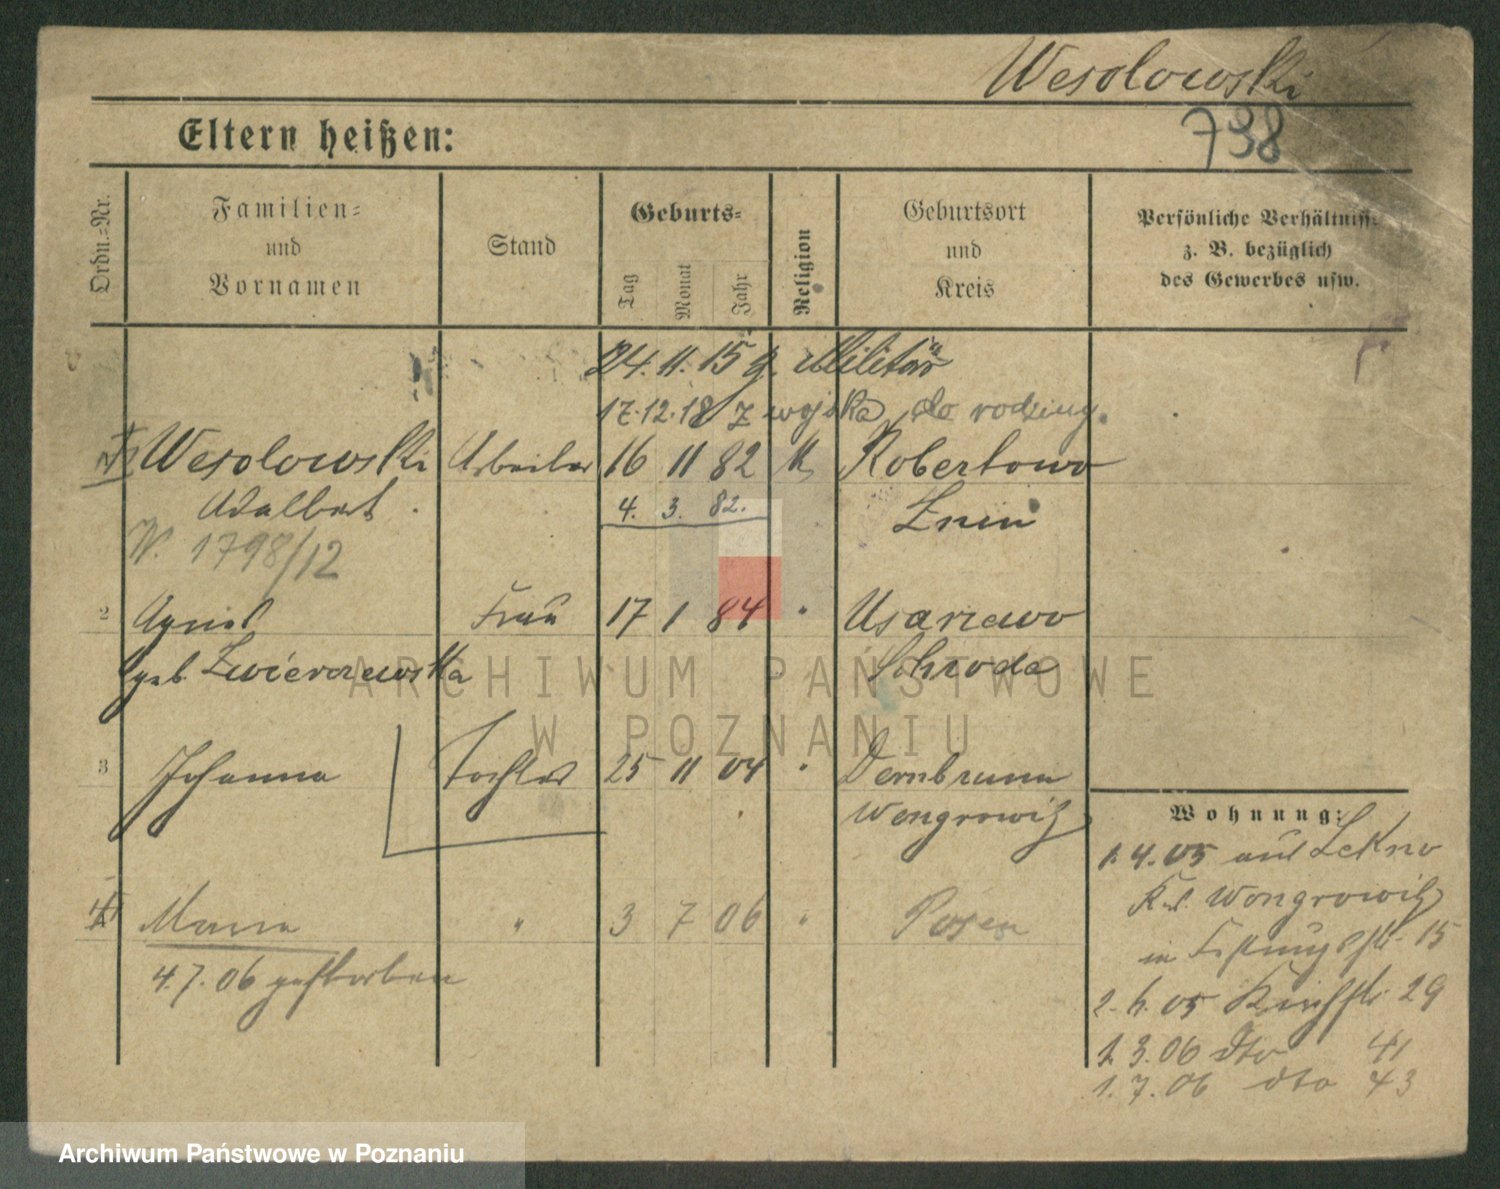 Wesolowski
738
Eltern heißen:
Ordn.-Nr.
Familien-
und
Vornamen
Stand
Geburts-
Tag
Monat
Jahr
Religion
Geburtsort
und
Kreis
Persönliche Verhältniss
z. B. bezüglich
des Gewerbes usw.
24. 11. 15 z. Militär
17.12.18 z wojska do rodziny.
Wesolowski Arbeiter 16 11 82 k Robertowo
Adalbert 4. 3. 82. Znin
N. 1798/12
2 Agnes Frau 17 1 84 " Usarzewo
geb Zwierzewska Schroda
3 Johanna Tochter 25 11 04 " Dernbrunn
Wongrowitz
Wohnung:
1. 4. 05 aus Lekno
Kr. Wongrowitz
in 15
4 Maria " 3 7 06 " Posen
4.7.06 gestorben
2. 6. 05 29
1. 3. 06 dto 41
1. 7. 06 dto 43
ARCHIWUM PAŃSTWOWE
W POZNANIU
Archiwum Państwowe w Poznaniu